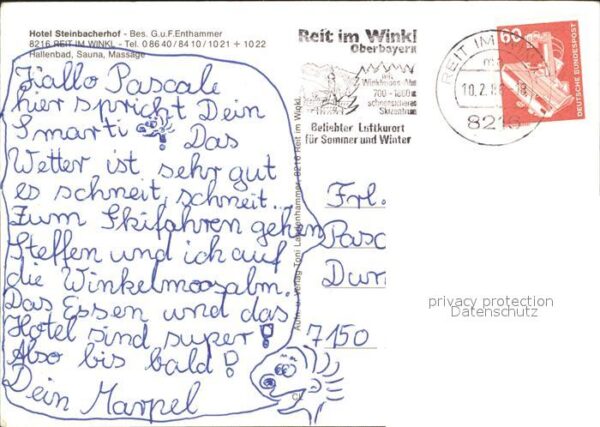 Hotel Steinbacherhof - Bes. G.u.F. Enthammer
8216 REIT IM WINKL - Tel. 08640/8410/1021 + 1022
Hallenbad, Sauna, Massage
Hallo Pascale
hier spricht Dein
Smarti Das
Wetter ist sehr gut
es schneit, schneit...
Zum Skifahren gehen
Steffen und ich auf
die Winkelmoosalm.
Das Essen und das
Hotel sind super!
Also bis bald!
Dein Marpel
Reit im Winkl
Oberbayern
mit
Winklmoos-Alm
700-1800m
schneesicheres
Skizentrum
Beliebter Luftkurort
für Sommer und Winter
REIT IM WI
10.2.86-18
8216
60
DEUTSCHE BUNDESPOST
Verlag Toni 8216 Reit im Winkl
Frl.
Pasc
Dur
7150
privacy protection
Datenschutz